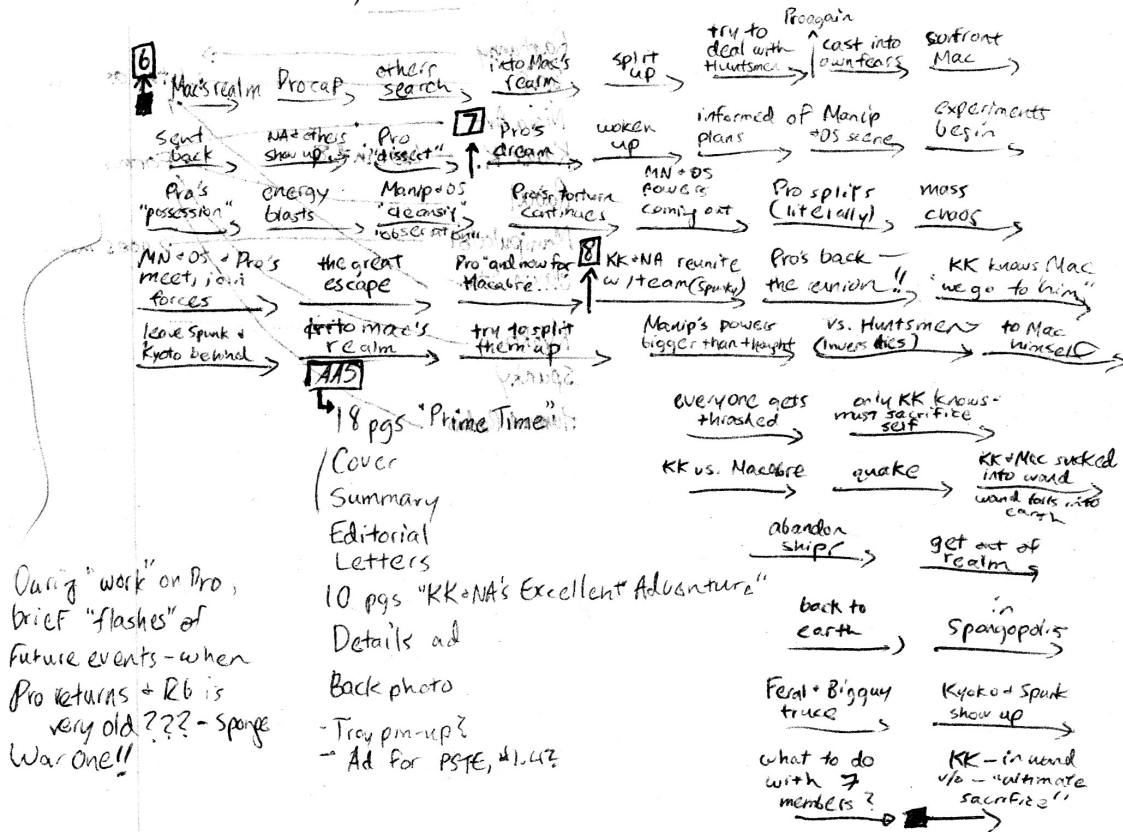 6
Mac's realm
Pro cap
others search
into Mac's realm
split up
try to deal with Huntsmen
Pro again
cast into own fears
confront Mac
sent back
NA + others show up
Pro "dissect"
7
Pro's dream
woken up
informed of plans
Manip + OS scene
experiments begin
Pro's "possession"
energy blasts
Manip + OS "cleansing" "observation"
Pro's torture continues
MN + OS powers coming out
Pro splits (literally)
mass chaos
MN + OS + Pro's meet, join forces
the great escape
Pro "and now for Macabre..."
8
KK + NA reunite w/team (Spunky)
Pro's back — the reunion!!
KK knows Mac "we go to him"
leave Spunk + Kyoto behind
into mac's realm
try to split them up
Manip's powers bigger than thought
vs. Huntsmen
to Mac himself
AA5
18 pgs "Prime Time"
Cover
Summary
Editorial
Letters
10 pgs "KK + NA's Excellent Adventure"
Details ad
Back photo
- Troy pin-up?
- Ad for PSTE,
everyone gets thrashed
only KK knows - must sacrifice self
KK vs. Macabre
quake
KK + Mac sucked into wand
wand falls into earth
abandon ship!
get out of realm
back to earth
in Spongopolis
Feral + Bigguy truce
Kyoko + Spunk show up
what to do with 7 members?
KK - in wand
v/o - "ultimate sacrifice"
During "work" on Pro,
brief "flashes" of
Future events - when
Pro returns + R6 is
very old??? - Sponge
War One!!